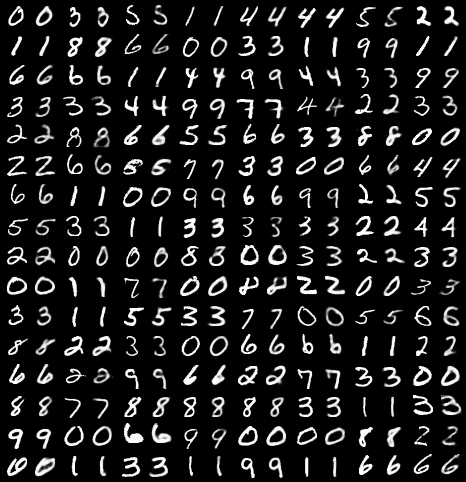 0 0 3 3 5 5 1 1 4 4 4 4 5 5 2 2
1 1 8 8 6 6 0 0 3 3 1 1 9 9 1 1
6 6 6 6 1 1 4 4 9 9 4 4 3 3 9 9
3 3 3 3 4 4 9 9 7 7 4 4 2 2 3 3
2 2 8 8 6 6 5 5 6 6 3 3 8 8 0 0
2 2 6 6 5 5 7 7 3 3 0 0 6 6 4 4
6 6 1 1 0 0 9 9 6 6 9 9 2 2 5 5
5 5 3 3 1 1 3 3 3 3 3 3 2 2 4 4
2 2 0 0 0 0 8 8 0 0 3 3 2 2 3 3
0 0 1 1 7 7 0 0 8 8 2 2 0 0 3 3
3 3 1 1 5 5 3 3 7 7 0 0 5 5 6 6
8 8 2 2 3 3 0 0 6 6 6 6 1 1 2 2
6 6 2 2 9 9 6 6 2 2 7 7 3 3 0 0
8 8 7 7 8 8 8 8 8 8 3 3 1 1 3 3
9 9 0 0 6 6 9 9 0 0 0 0 8 8 2 2
0 0 1 1 3 3 1 1 9 9 1 1 6 6 6 6